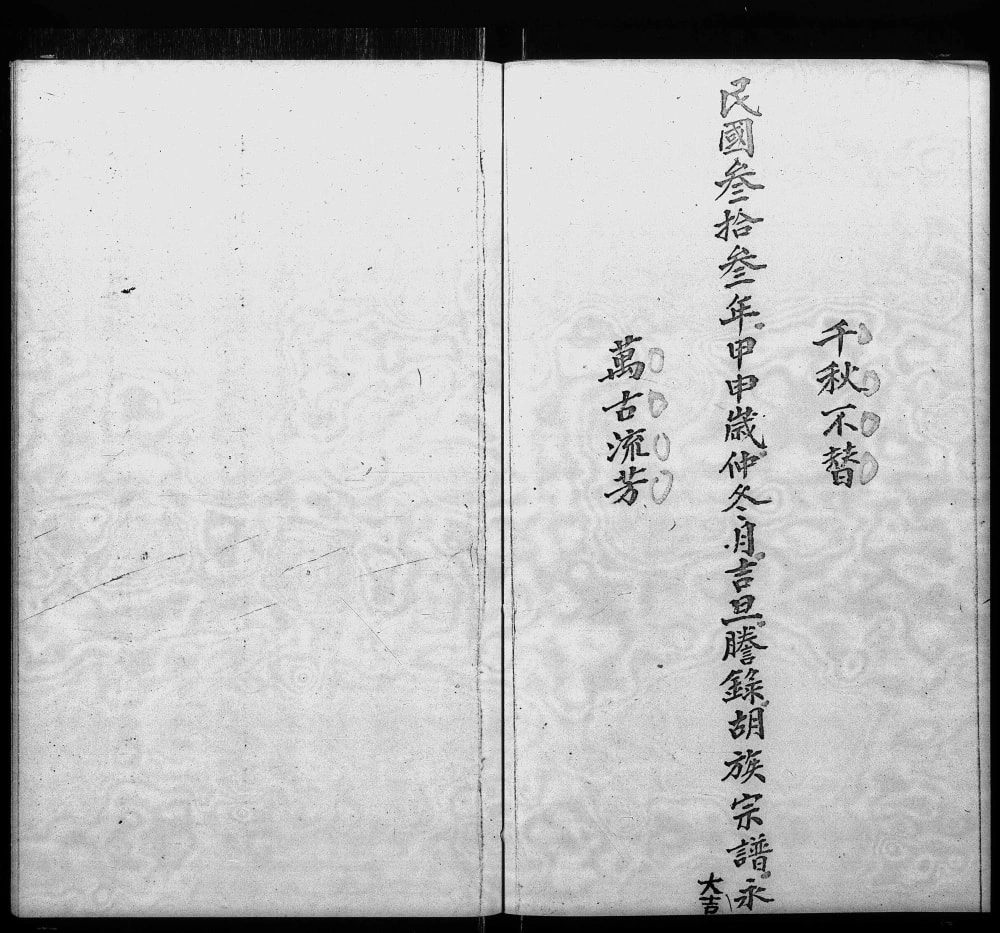 千秋不替
民國叁拾叁年甲申歲仲冬月吉旦謄錄胡族宗譜永
大吉
萬古流芳